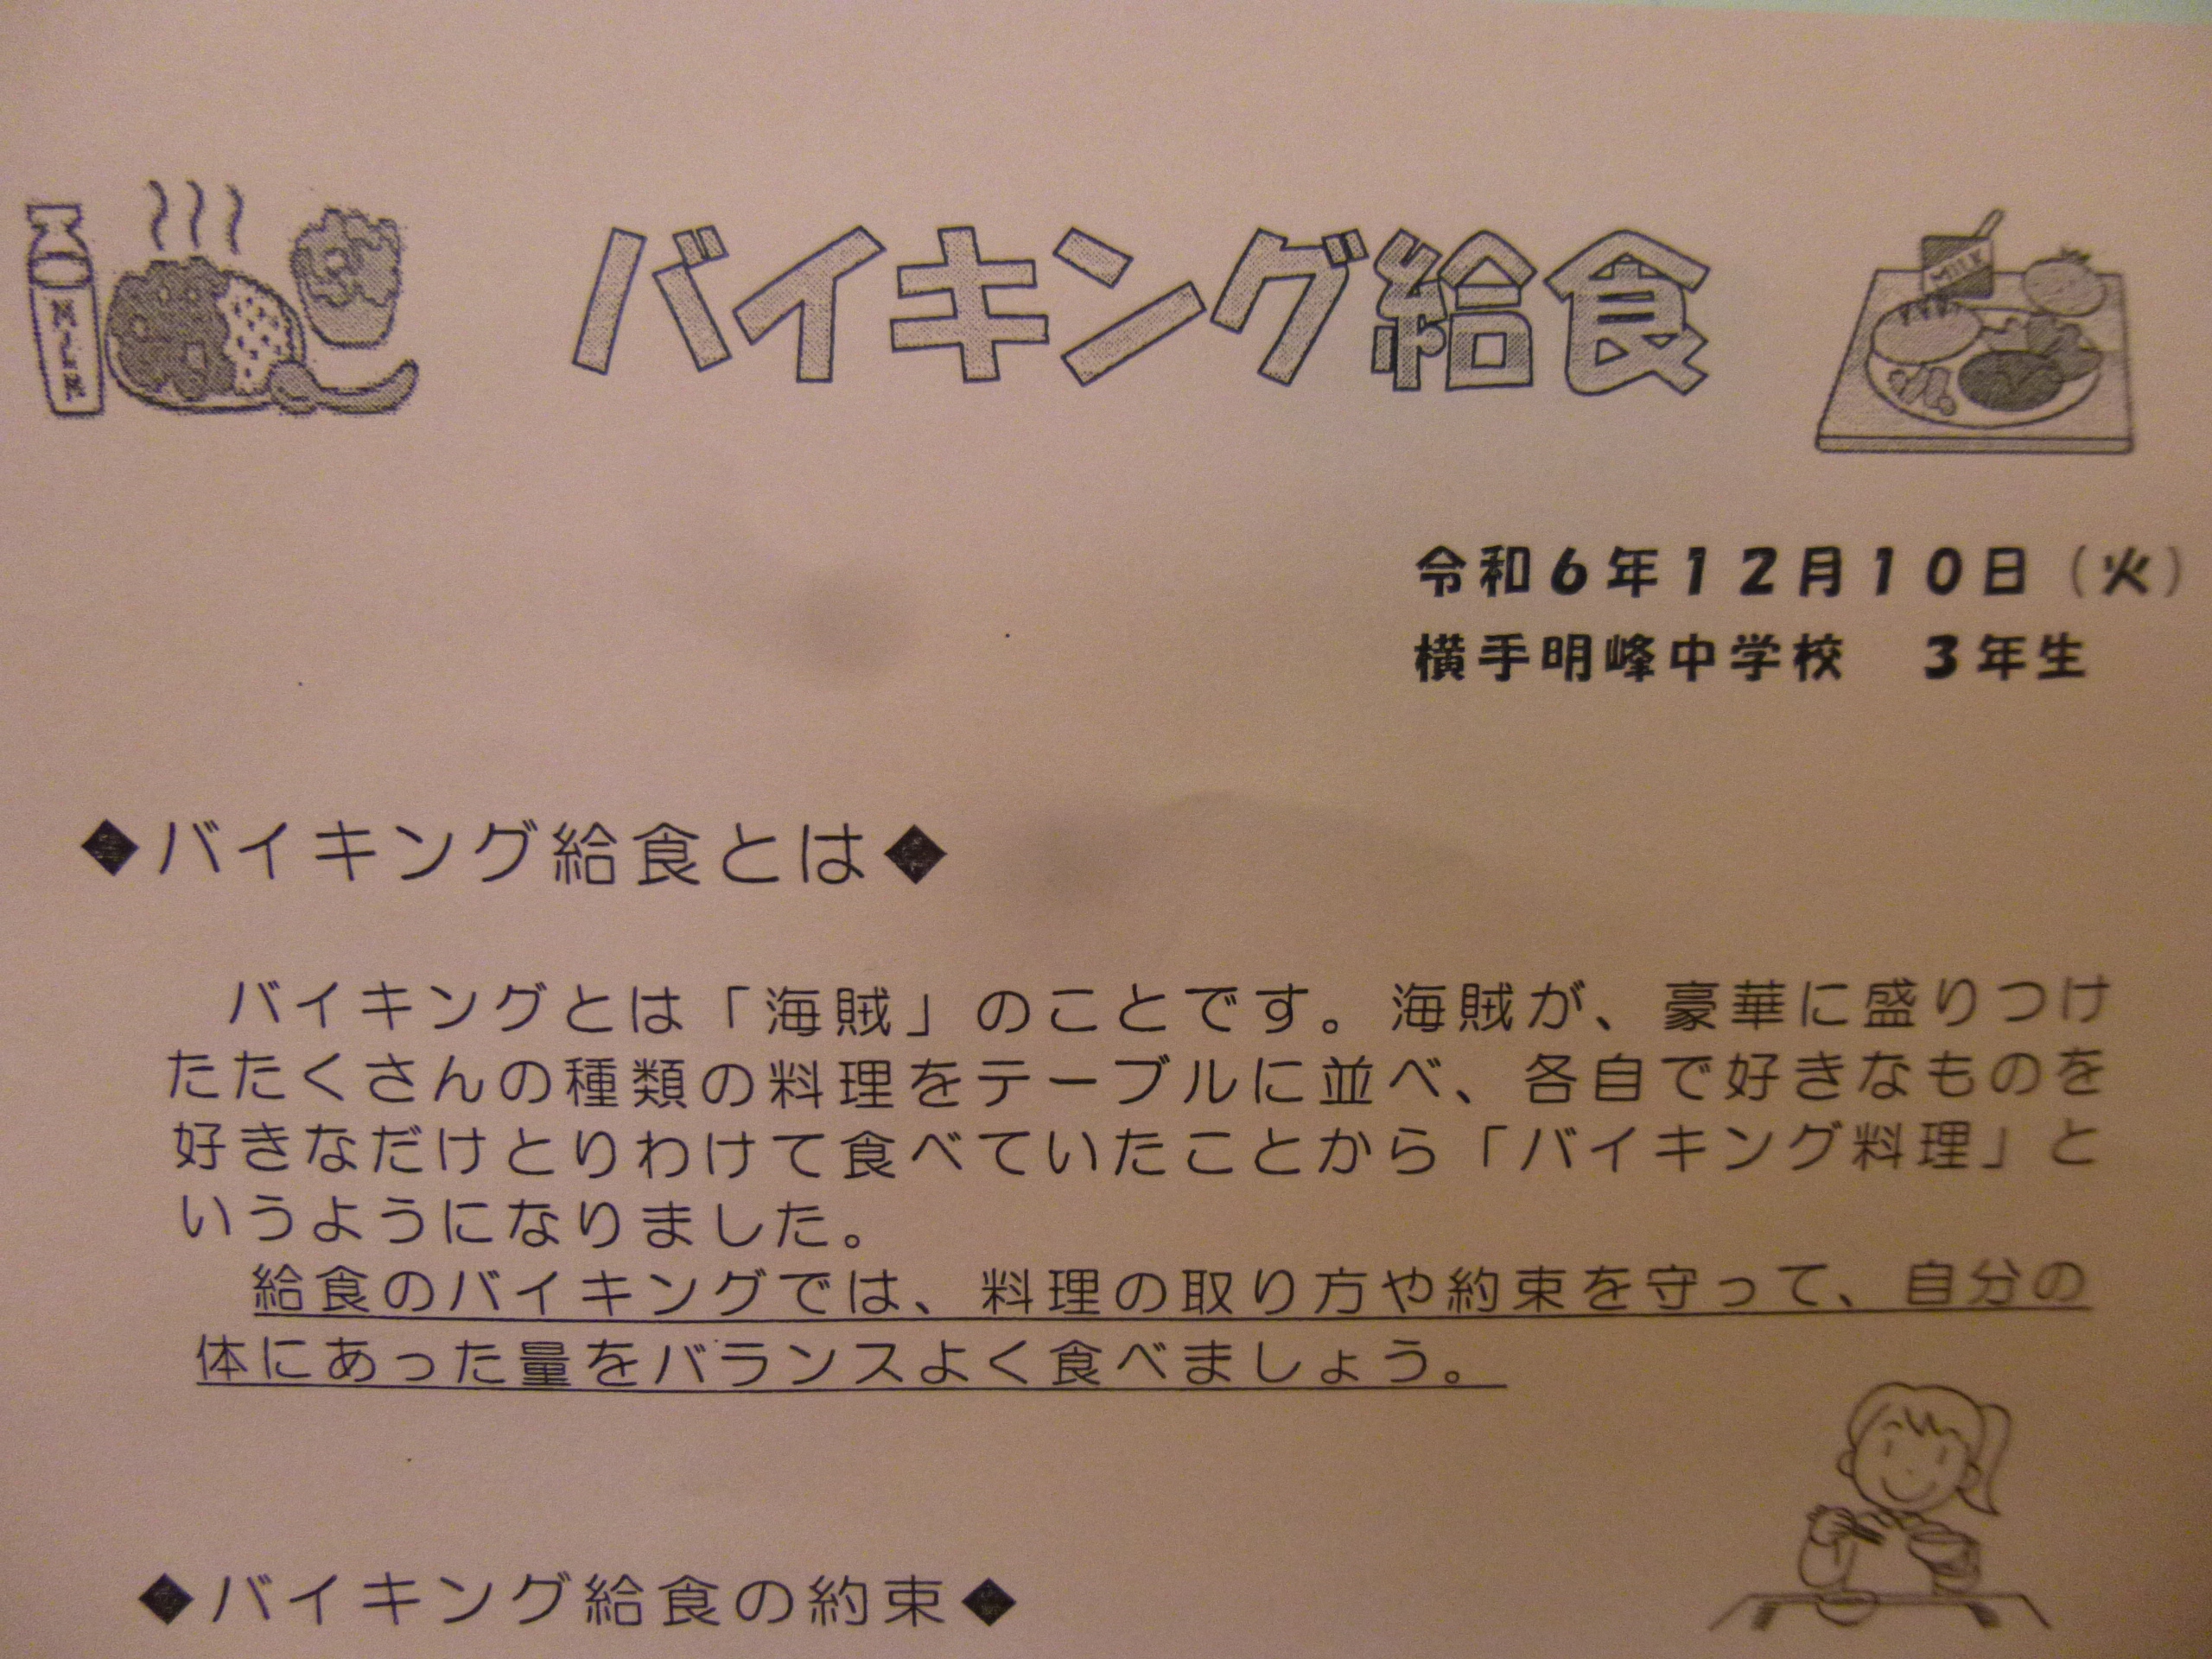 バイキング給食
MILK
MILK
令和6年12月10日（火）
横手明峰中学校　3年生
◆バイキング給食とは◆
バイキングとは「海賊」のことです。海賊が、豪華に盛りつけ
たたくさんの種類の料理をテーブルに並べ、各自で好きなものを
好きなだけとりわけて食べていたことから「バイキング料理」と
いうようになりました。
給食のバイキングでは、料理の取り方や約束を守って、自分の
体にあった量をバランスよく食べましょう。
◆バイキング給食の約束◆